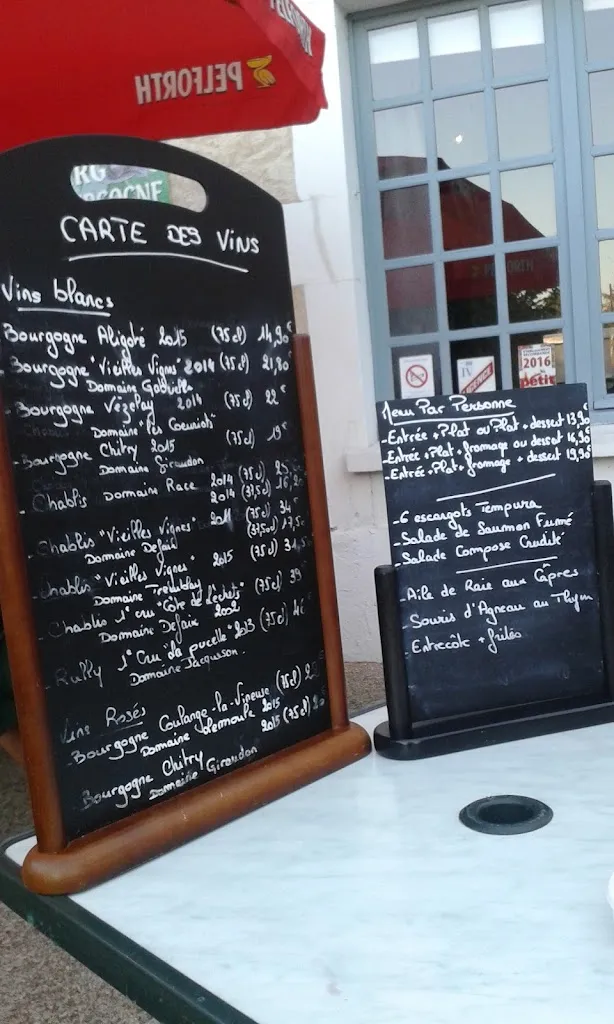 PELFORTH
CARTE DES VINS
Vins blancs
Bourgogne Aligoté 2015 (75cl) 14,90€
- Bourgogne "Vieilles Vignes" 2014 (75cl) 21,80€
Domaine
- Bourgogne Vézelay 2014 (75cl) 22€
Domaine les
- Bourgogne Chitry 2015 (75cl) 19€
Domaine Giraudon
- Chablis Domaine Race 2014 (75cl)
2014 (37,5cl)
- Chablis "Vieilles Vignes" 2011 (75cl) 34€
Domaine Defaix (37,50cl) 17,50€
- Chablis "Vieilles Vignes" 2015 (75cl)
Domaine Tremblay
- Chablis 1er cru "Côte de Léchets" (75cl) 39€
Domaine Defaix 2002
- Rully 1er Cru "la pucelle" 2013 (75cl) 46€
Domaine Jacqueson.
Vins Rosés
- Bourgogne Coulange-la-Vineuse (75cl)
Domaine 2015
- Bourgogne Chitry 2015 (75cl)
Domaine Giraudon
PELFORTH
2016
petit
Menu Par Personne
- Entrée + Plat ou Plat + dessert 13,90€
- Entrée + Plat + fromage ou dessert 16,90€
- Entrée + Plat + fromage + dessert 19,90€
- 6 escargots Tempura
- Salade de Saumon Fumé
- Salade Compose Crudité
- Aile de Raie aux Câpres
- Souris d'Agneau au Thym
- Entrecôte + frites